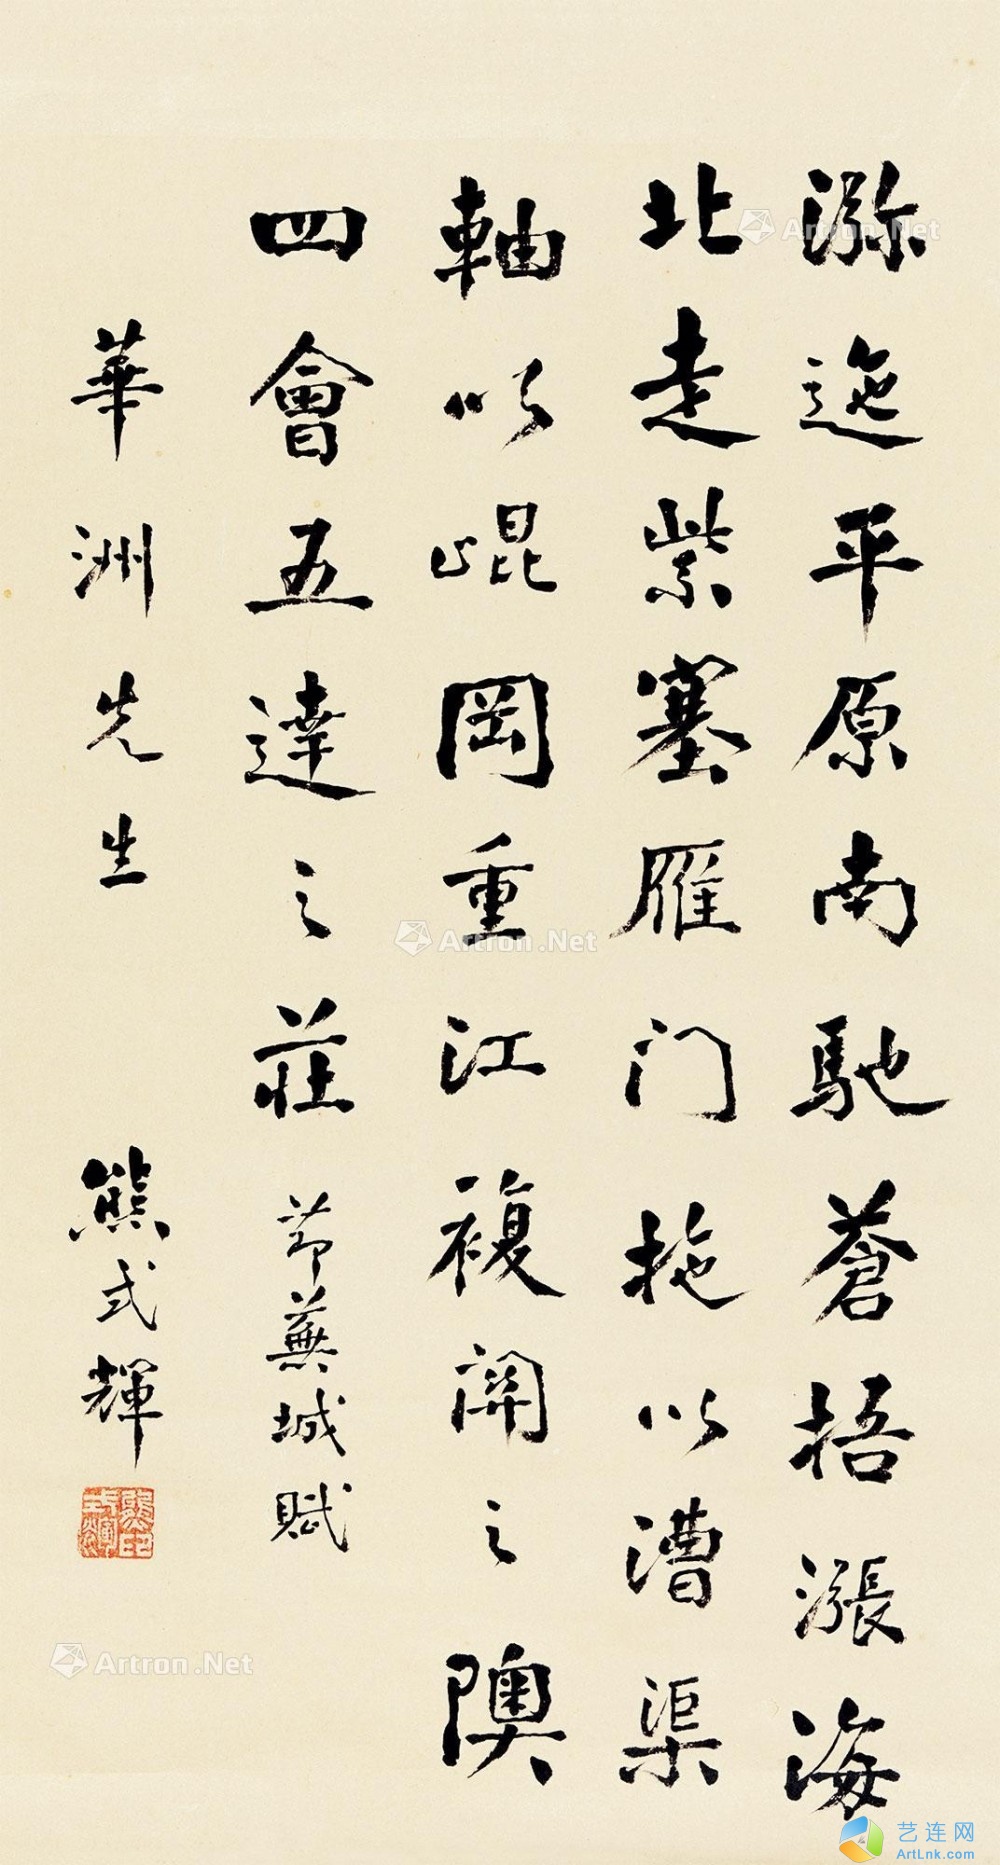 瀰迤平原南馳蒼梧漲海
北走紫塞雁门拖以漕渠
軸以崐岡重江複関之隩
四會五達之莊 节蕪城賦
華洲先生 熊式輝
熊式輝印
Artron.Net
Artron.Net
Artron.Net
艺连网
ArtLnk.com